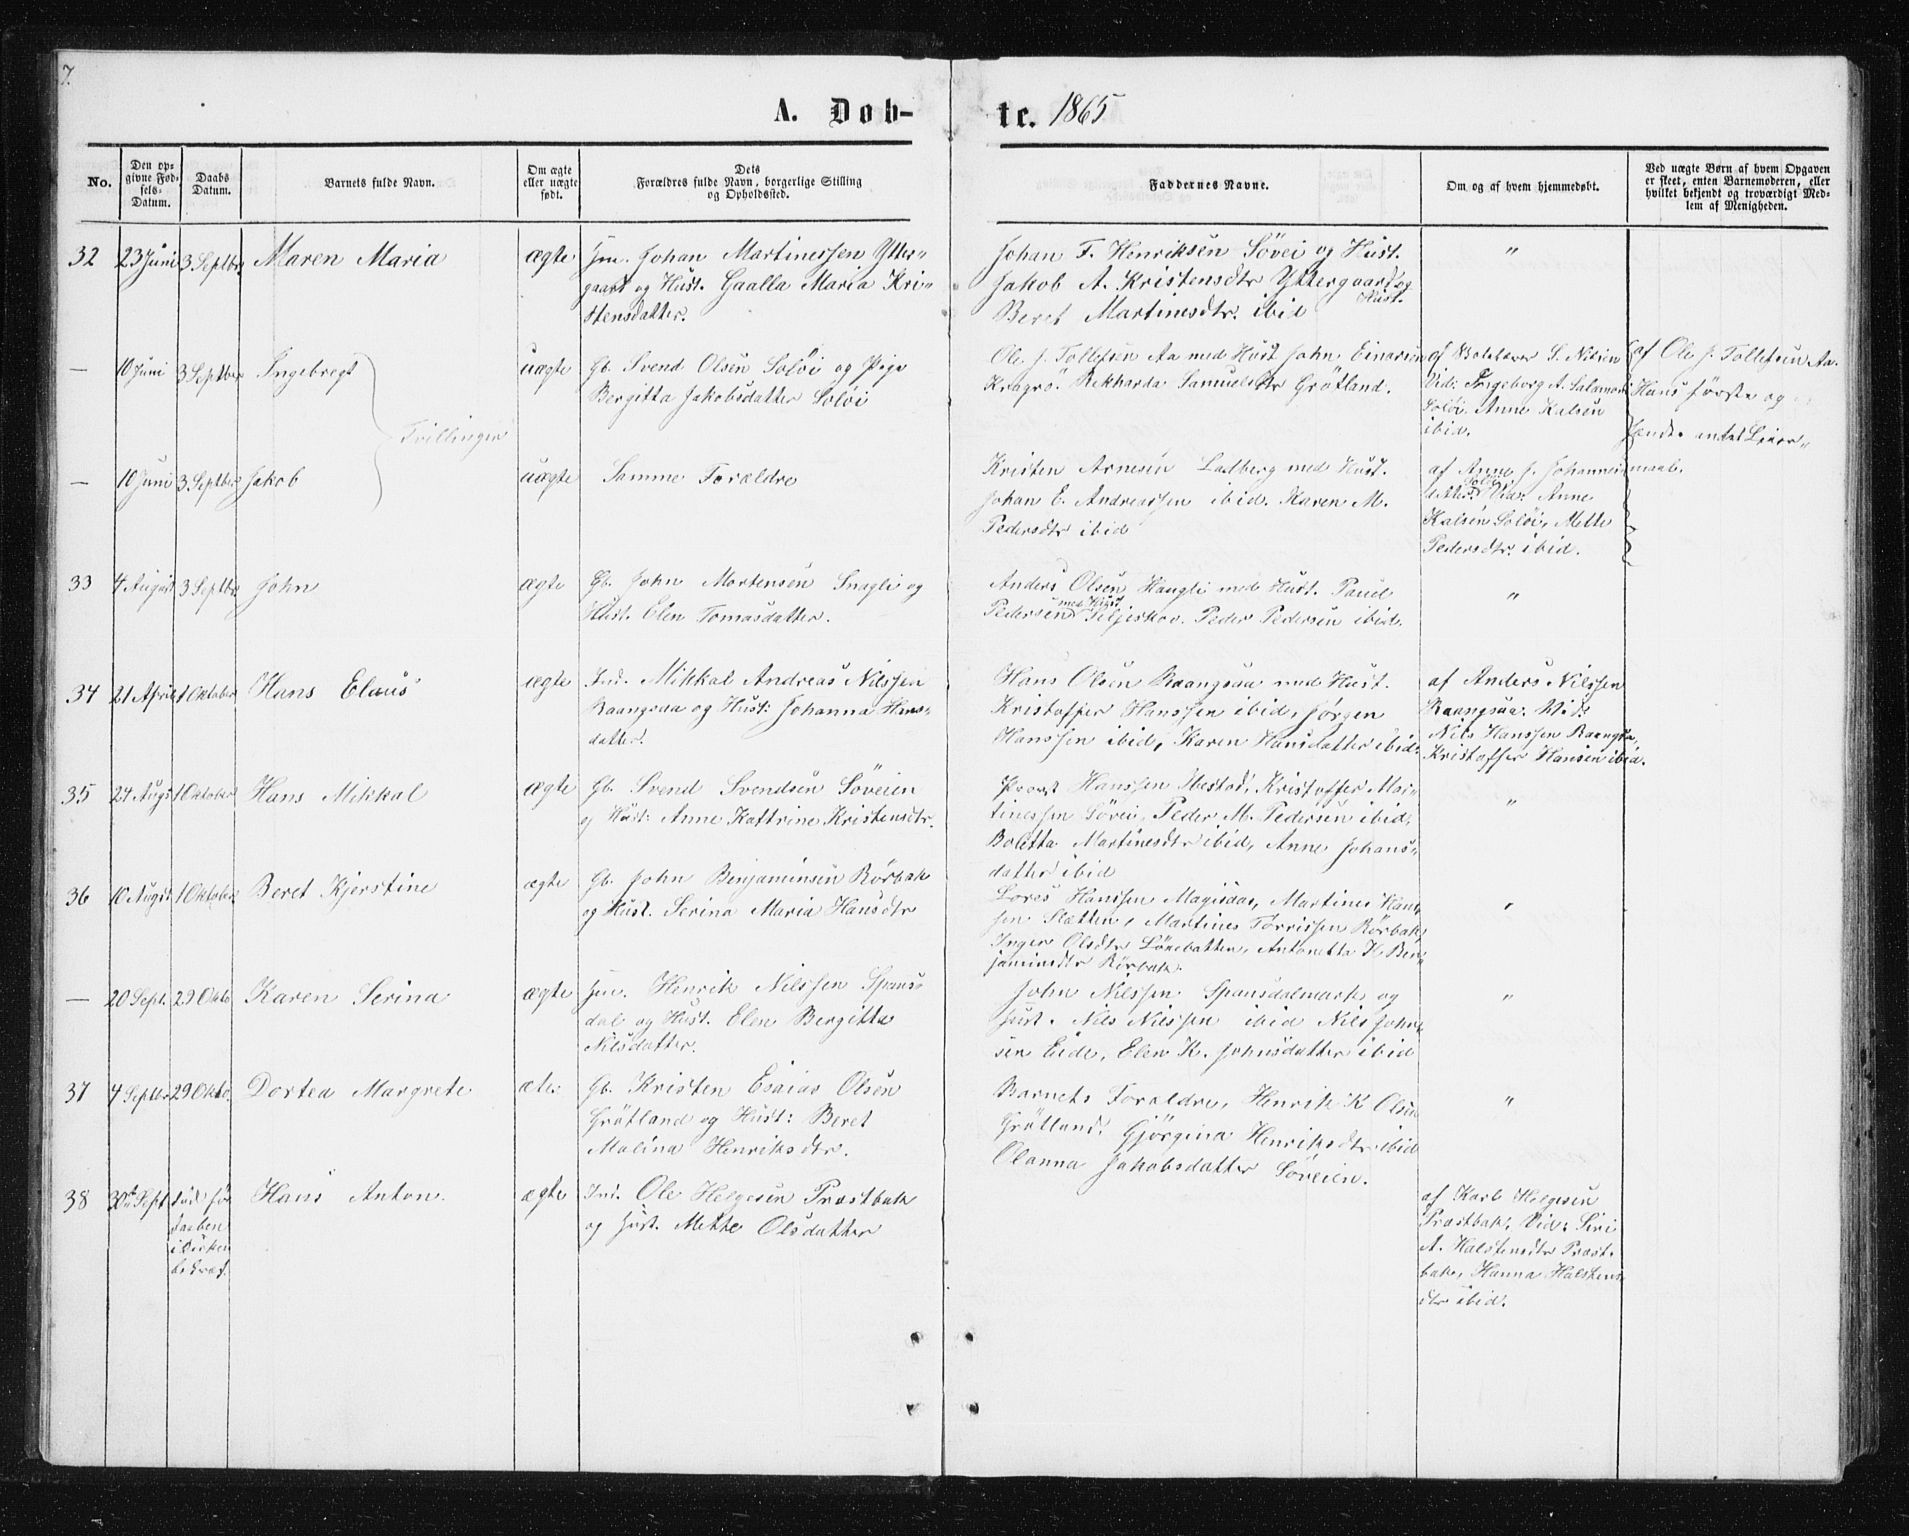 7.
A. Døb-
te. 1865
No.
Den op-
givne Fød-
sels-
Datum.
Daabs
Datum.
Barnets fulde Navn.
Om ægte
eller uægte
født.
Dets
Forældres fulde Navn, borgerlige Stilling
og Opholdssted.
Faddernes Navne.
Om og af hvem hjemmedøbt.
Ved uægte Børn af hvem Opgaven
er skeet, enten Barnemoderen, eller
hvilket bekjendt og troværdigt Med-
lem af Menigheden.
32 23 Juni 3 Septbr Maren Maria ægte Johan Martinessen Ytter-
gaard og Hust. Gaalla Maria Kri-
stensdatter.
Johan F. Henriksen Søvei og Hust.
Jakob A. Kristensdtr Yttergaard og
Hust.
Beret Martinesdtr. ibid
"
— 10 Juni 3 Septber Ingebregt uægte Gb. Svend Olsen Soløi og Pige
Bergitta Jakobsdatter Soløi
Tvillinger
Ole J. Tollefsen Aa med Hust John Einarsen
Kragrø. Rekharda Samuelsdtr Grøtland.
af S. Nilsen
Vid: Ingeborg A. Salamons
Soløi. Anne Kalsen
ibid.
af Ole J. Tollefsen Aa.
Hans første og
hendes andet Leier-
maal.
— 10 Juni 3 Septber Jakob uægte Samme Forældre
Kristen Arnesen Ladberg med Hust.
Johan E. Andreassen ibid. Karen M.
Pedersdtr ibid
af Anne J. Johannes-
datter Soløi. Vid: Anne
Kalsen Soløi, Mette
Pedersdtr. ibid.
33 4 August 3 Septbr John ægte Gb. John Mortensen Snagli og
Hust. Elen Tomasdatter.
Anders Olsen Haugli med Hust. Paul
Pedersen med Hust Siljeskov. Peder Pedersen ibid.
"
34 21 April 1 Oktober Hans Elaus ægte Ind. Mikkal Andreas Nilssen
Raangsaa og Hust: Johanna Hans-
datter.
Hans Olsen Raangsaa med Hust.
Kristoffer Hanssen ibid, Jørgen
Hanssen ibid, Karen Hansdatter ibid.
af Anders Nilssen
Raangsaa. Vid:
Nils Hanssen Raangsa,
Kristoffer Hansen ibid.
35 24 Augs 1 Oktober Hans Mikkal ægte Gb. Svend Svendsen Søveien
og Hust: Anne Kattrine Kristensdtr.
Hanssen Kristoffer Mar-
tinessen Søvei, Peder M. Pedersen ibid,
Boletta Martinesdtr ibid, Anne Johans-
datter ibid
"
36 10 Augst 1 Oktober Beret Kjerstine ægte Gb. John Benjaminsen Rørbak
og Hust. Serina Maria Hansdtr
Lores Hanssen Magisdas, Martines Hans-
sen Slætten, Martines Torrissen Rørbak,
Inger Olsdtr Lønebotten, Antonetta K. Ben-
jaminsdtr Rørbak.
"
— 20 Sept. 29 Okto Karen Serina ægte Henrik Nilssen Spans-
dal og Hust. Elen Bergitta
Nilsdatter.
John Nilssen Spansdalmark og
Hust. Nils Nilssen ibid Nils John-
sen Eide, Elen K. Johnsdatter ibid
"
37 4 Septbr 29 Okto. Dortea Margrete Gb. Kristen Esaias Olsen
Grøtland og Hust: Beret
Malina Henriksdtr.
Barnets Forældre, Henrik K Olsen
Grøtland. Gjørgina Henriksdtr ibid
Olanna Jakobsdatter Søveien.
"
38 30te Sept død før
daaben
i Kirken
bekræf.
Hans Anton. ægte Ind. Ole Helgesen Præstbak
og Hust. Mette Olsdatter
af Karl Helgesen
Præstbak, Vid: Siri
A. Halstensdtr Præst-
bak, Hanna Halstens-
dtr ibid.